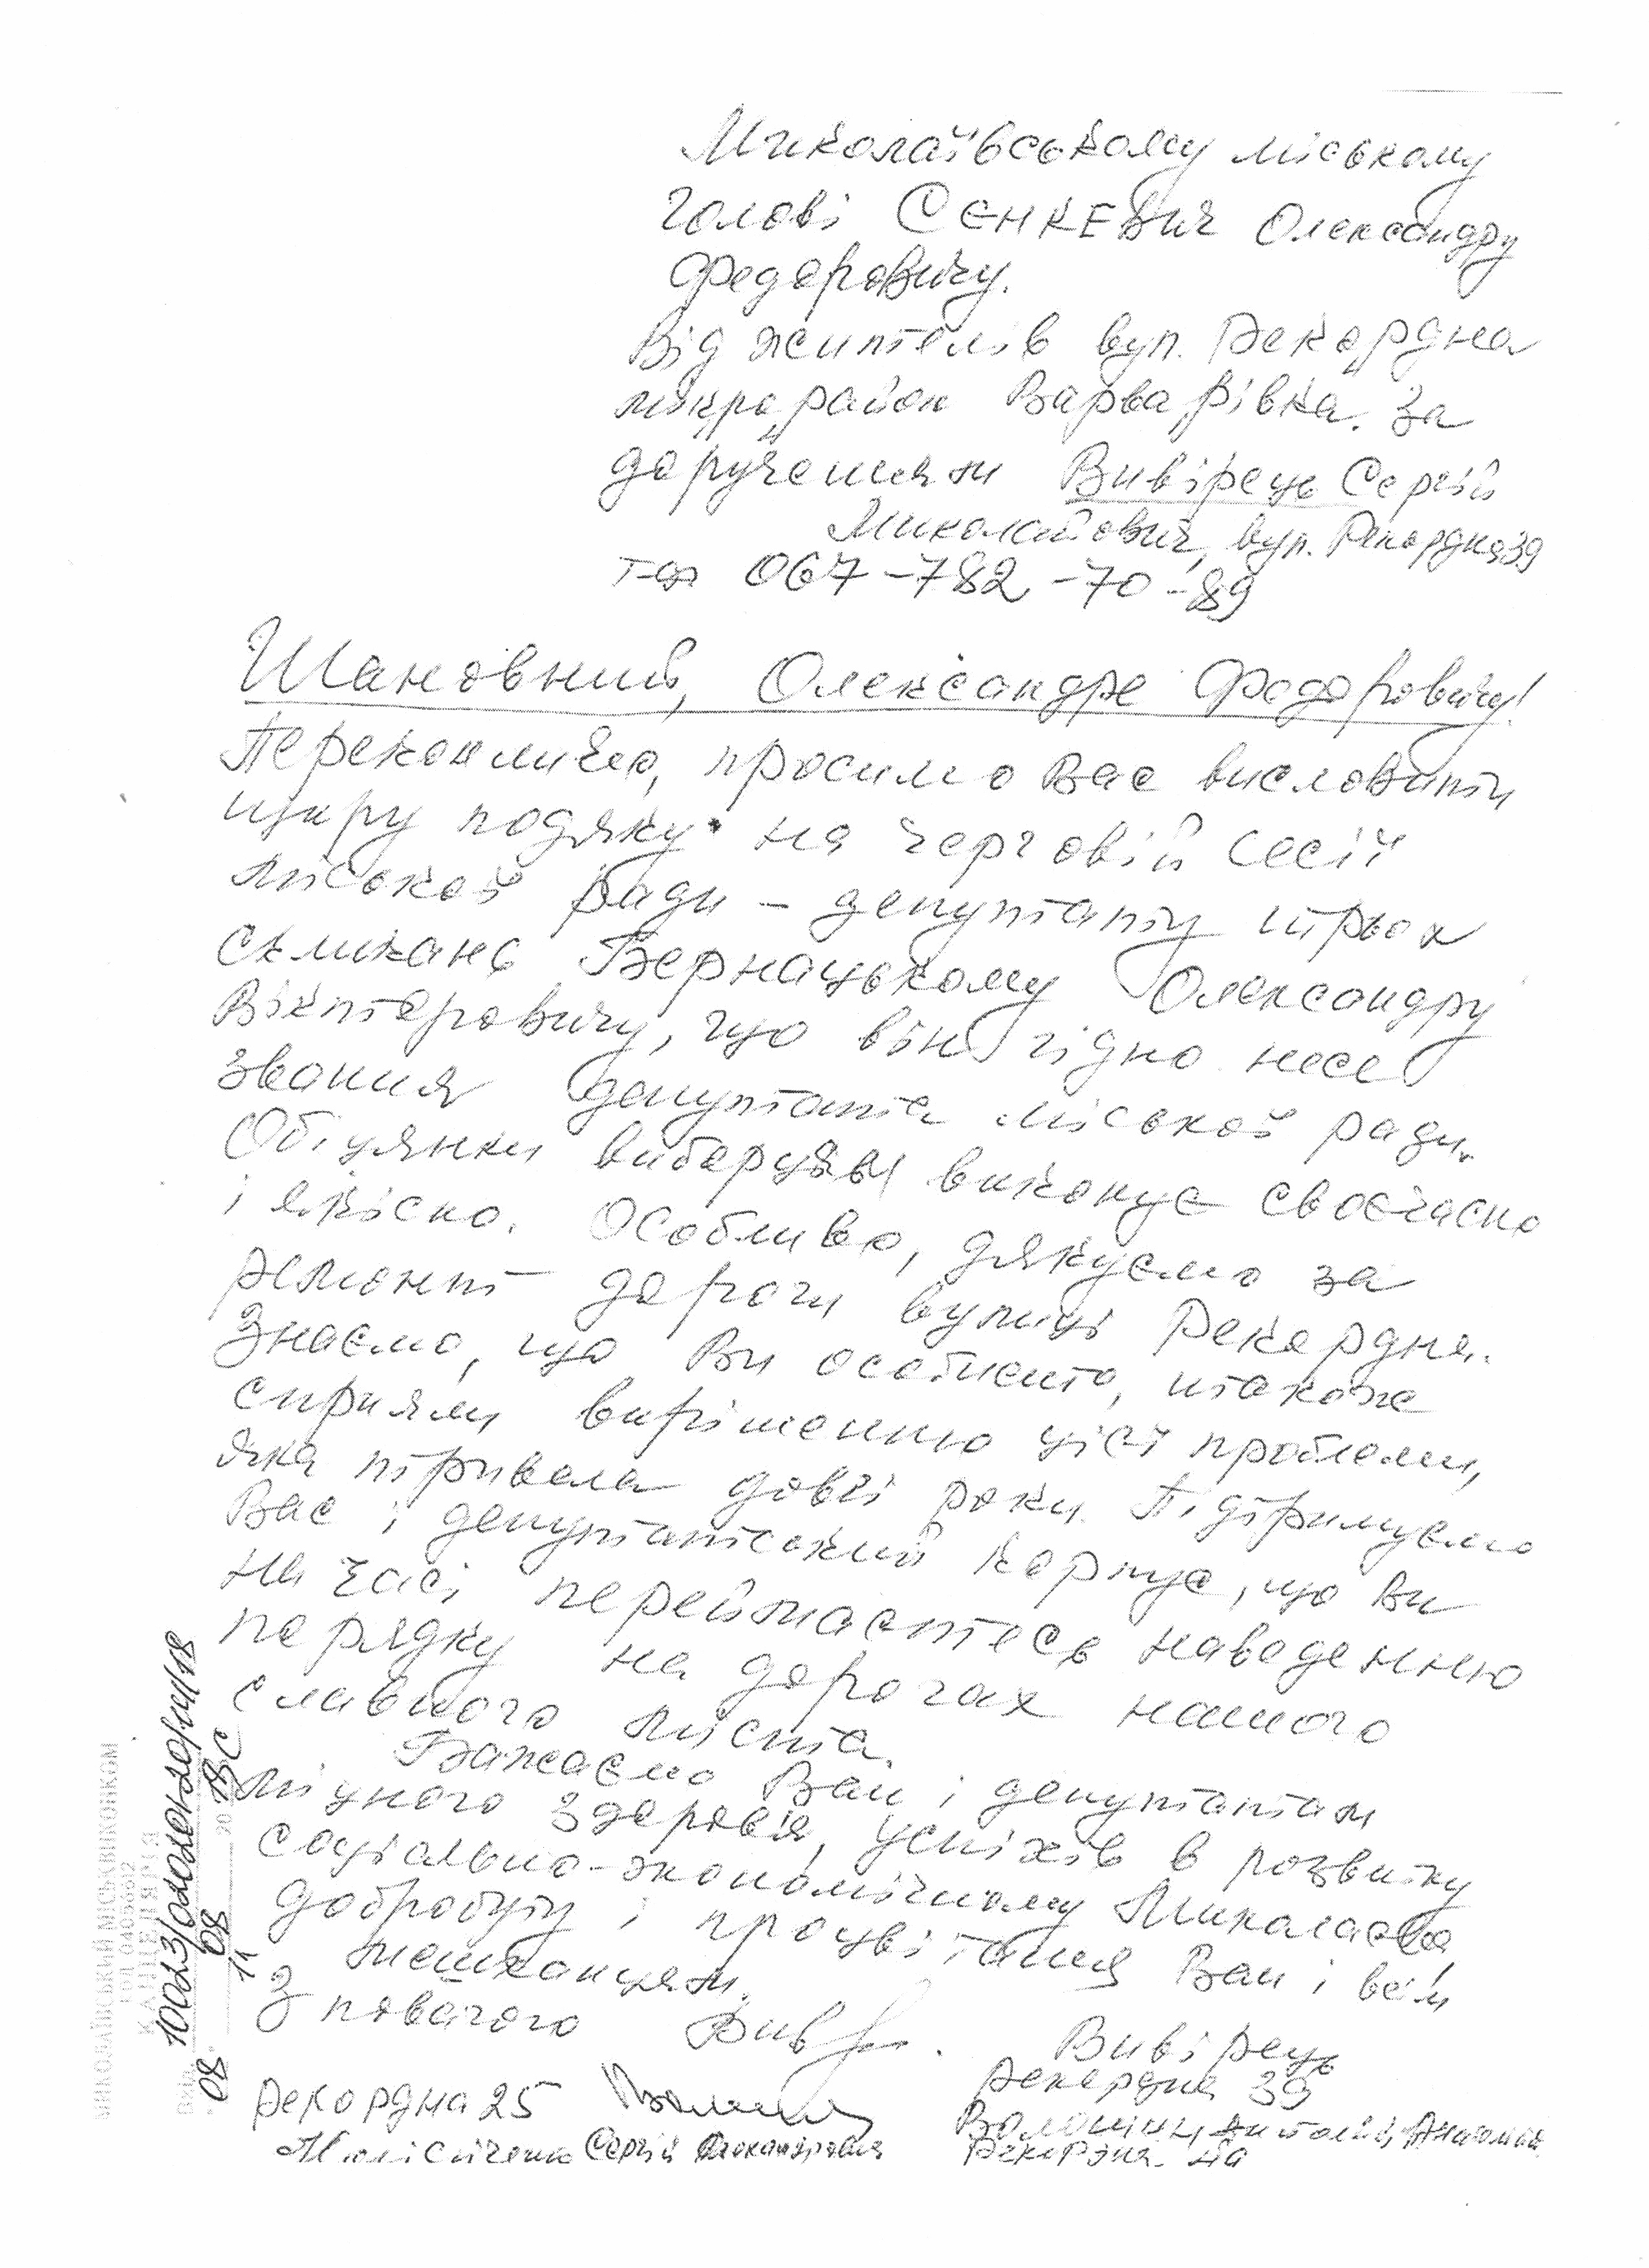 Миколаївському міському
голові СЄНКЕВИЧ Олександру
Федоровичу.
Від жителів вул. Рекордна
мікрорайон Варварівка. За
дорученням Вивірець Сергій
Миколайович, вул. Рекордна 39
тел 067-782-70-89
Шановний, Олександре Федоровичу!
Переконливо, просимо Вас висловити
щиру подяку на черговій сесії
міської ради - депутату трьох
скликань Бернацькому Олександру
Вікторовичу, що він гідно несе
звання депутата міської ради.
Обіцянки виборцям виконує своєчасно
і якісно. Особливо, дякуємо за
ремонт дороги вулиці Рекордна.
Знаємо, що Ви особисто, також
сприяли вирішенню цієї проблеми,
яка тривала довгі роки. Підтримуємо
Вас і депутатський корпус, що Ви
на часі переймаєтесь наведенню
порядку на дорогах нашого
славного міста.
Бажаємо Вам і депутатам
міцного здоров'я, успіхів в розвитку
соціально-економічному Миколаєва,
добробуту і процвітання Вам і всім
мешканцям.
З повагою Вивірець
Рекордна 39
Рекордна 25
Сергій Олександрович
Рекордна 4а
МИКОЛАЇВСЬКИЙ МІСЬКВИКОНКОМ
КАНЦЕЛЯРІЯ
10023/020201-20/14/18
08 08
11